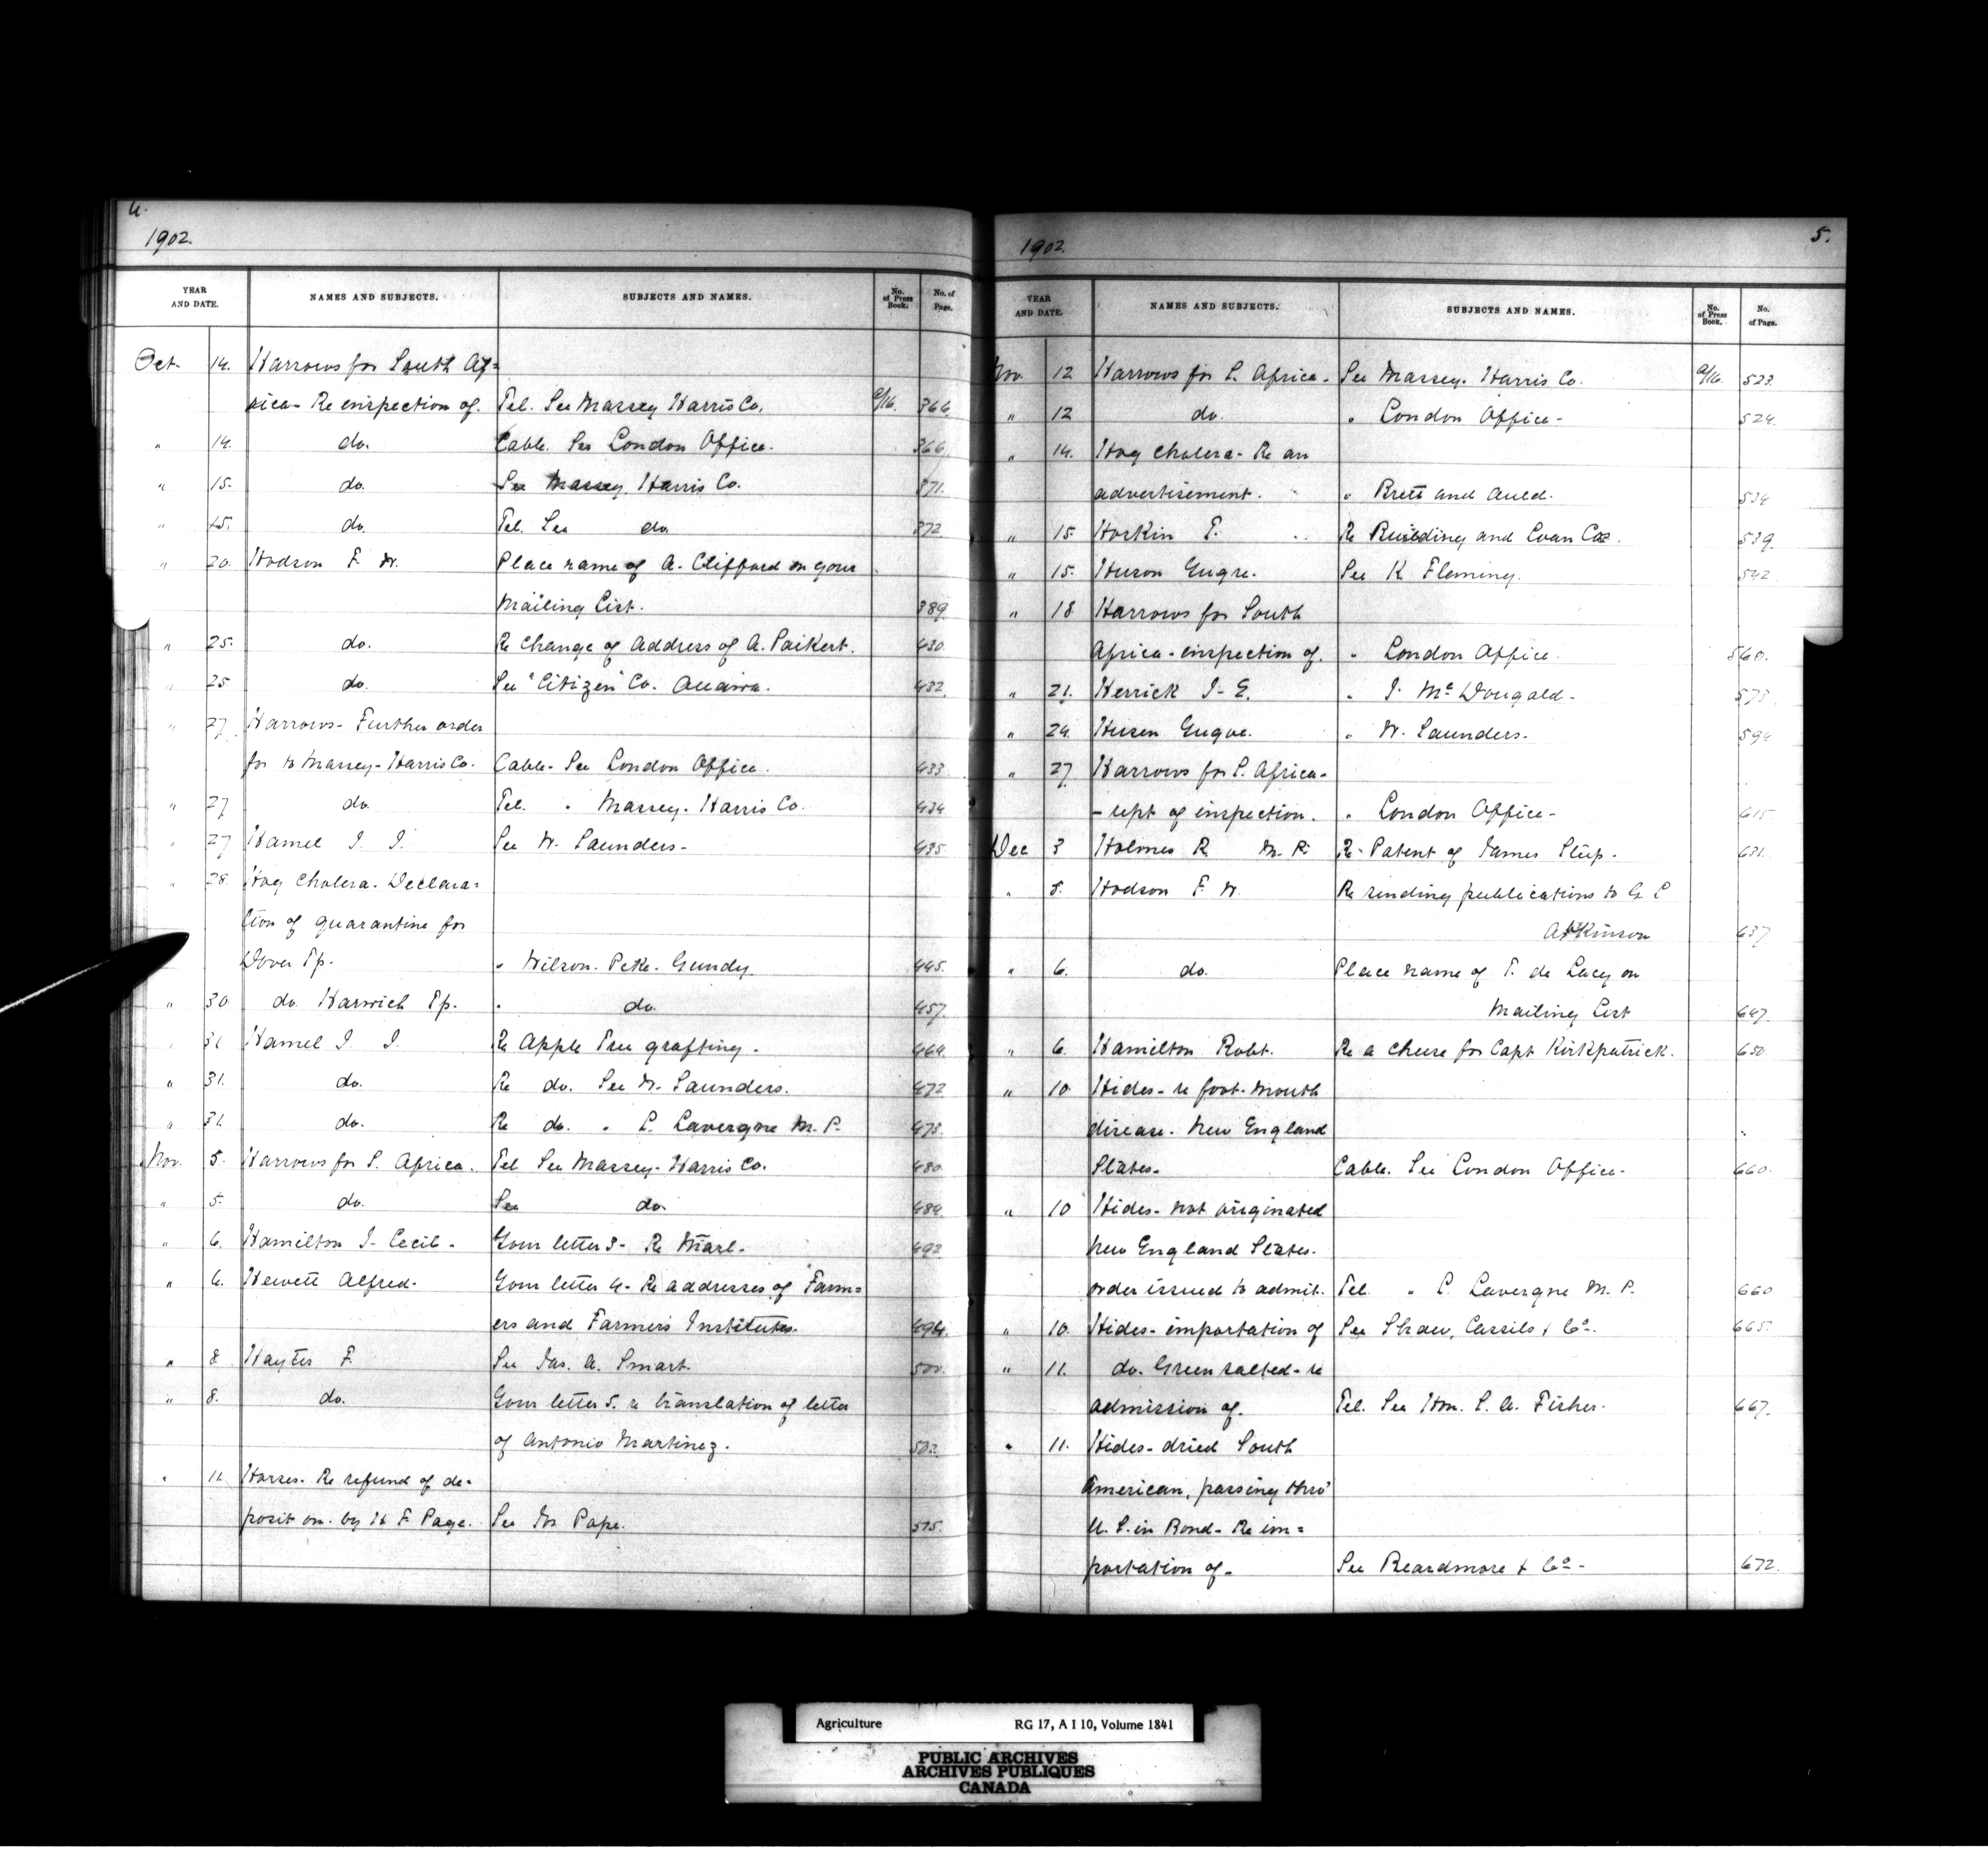 4.
1902.
YEAR AND DATE. NAMES AND SUBJECTS. SUBJECTS AND NAMES. No. of Press Book. No. of Page.
Oct. 14. Harrows for South Af=
rica - Re inspection of. Tel. See Massey Harris Co. 9/16. 366.
" 14. do. Cable. See London Office. 366
" 15. do. See Massey. Harris Co. 371.
" 15. do. Tel. See do. 372
" 20. Hodson F. W. Place name of A. Clifford on your
Mailing List. 389
" 25. do. Re Change of Address of A. Paikert. 430.
" 25 do. See "Citizen" Co. Ottawa. 432.
" 27. Harrows - Further order
for to Massey - Harris Co. Cable - See London Office. 433
" 27 do. Tel. " Massey. Harris Co. 434
" 27 Hamel J. J. See W. Saunders - 435.
" 28. Hog Cholera. Declara=
tion of quarantine for
Dover Tp. " Wilson. Pike. Gundy 445.
" 30 do. Harwich Tp. " do. 457.
" 31 Hamel J. J. Re Apple Tree grafting. 464.
" 31. do. Re do. See W. Saunders. 472
" 31. do. Re do. " L. Lavergne M. P. 473.
Nov. 5. Harrows for S. Africa. Tel See Massey - Harris Co. 480.
" 5. do. See do. 484.
" 6. Hamilton J - Cecil - Your letter 3 - Re Marl - 492
" 6. Hewett Alfred - Your letter 4 - Re addresses of Farm=
ers and Farmers Institutes. 494.
" 8 Hayter F. See Jas. A. Smart. 500.
" 8. do. Your letter 5. re translation of letter
of Antonio Martinez. 502.
" 11 Horses. Re refund of de=
posit on - by H F. Page. See Mr Pope. 515.
1902. 5.
YEAR AND DATE. NAMES AND SUBJECTS. SUBJECTS AND NAMES. No. of Press Book. No. of Page.
Nov. 12 Harrows for S. Africa - See Massey. Harris Co. 9/16. 523.
" 12 do. " London Office - 524.
" 14. Hog Cholera - Re an
advertisement. " Brett and Auld. 534
" 15. Horkin T. Re Building and Loan Cos. 539.
" 15. Huson Eugne. See K Fleming. 542
" 18 Harrows for South
Africa - inspection of. " London Office. 560.
" 21. Herrick J - E. " J. McDougald - 573.
" 24. Huson Eugne. " W. Saunders - 594
" 27 Harrows for S. Africa -
- rept of inspection. " London Office - 615
Dec 3 Holmes R M. P. Re - Patent of James Slup. 631.
" 5. Hodson F. W. Re sending publications to G. L
Atkinson 637
" 6. do. Place name of T. de Lacey on
Mailing List 647.
" 6. Hamilton Robt. Re a cheese for Capt Kirkpatrick. 650.
" 10 Hides - re foot - mouth
disease - New England
States - Cable. See London Office - 660.
" 10 Hides - not originated
New England States.
order issued to admit. Tel. " L. Lavergne M. P. 660
" 10. Hides - importation of See Shaw, Cassils & Co. 665.
" 11. do. Green salted - re
admission of. Tel. See Hon. S. A. Fisher. 667.
" 11. Hides - dried South
American, passing thro'
U. S. in Bond - Re im=
portation of - See Beardmore & Co - 672.
Agriculture RG 17, A I 10, Volume 1841
PUBLIC ARCHIVES
ARCHIVES PUBLIQUES
CANADA